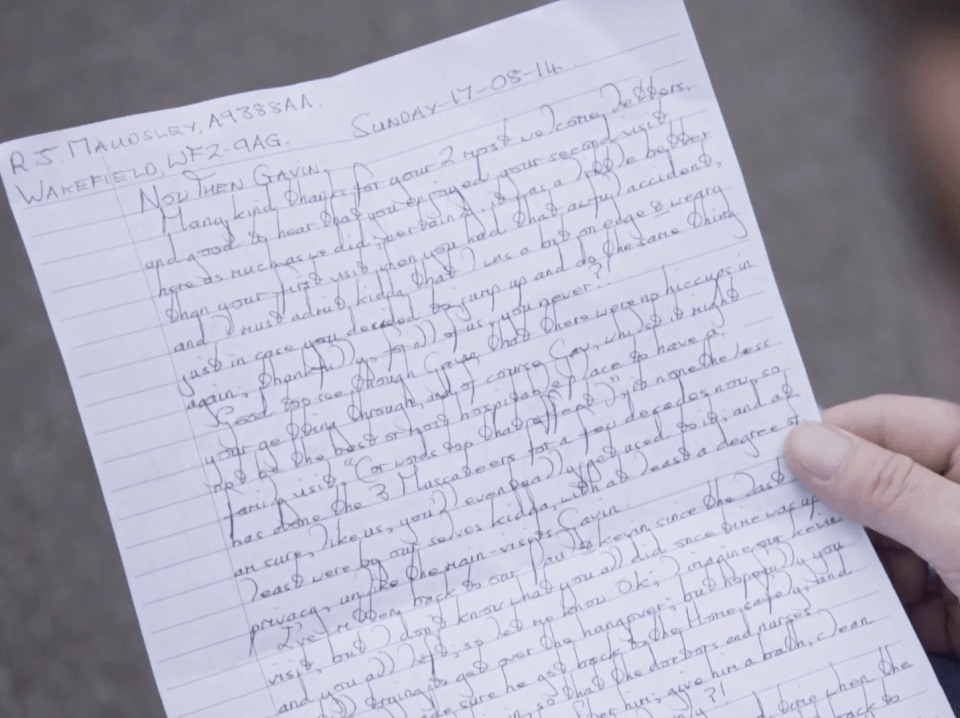 R.J. MAUDSLEY, A9388AA.
SUNDAY-17-08-14.
WAKEFIELD, WF2-9AG.
NOW THEN GAVIN,
Many kind thanks for your 2 most welcome letters,
and good to hear that you enjoyed your second visit
here as much as we did; certainly it was a little better
than your first visit when you had that awful accident,
and I must admit kidda that I was a bit on edge & weary
just in case you decided to jump up and do the same thing
again, thankfully for all of us, you never?!
Good to see though Gavin, that there were no hiccups in
your getting through, and of course Gav, whilst it might
not be the best or most hospitable place to have a
family visit, "Cor words to that effect)", it nonetheless
has done the 3 Muscateers for a few decades now, so
am sure, like us, you'll eventually get used to it, and at
least were by our selves kidda, with at least a degree of
privacy, unlike the main-visits Gavin.
I've written back to our Paul & Kevin since the last
visit, but I don't know what you all did once time was up
and you all left, so let me know OK; I imagine our Kevin
trying to get over the hangover; but hopefully you
made sure he got back to the Home safely, and
in, so that the doctors and nurses
him, give him a bath, clean
?!
when the
back to